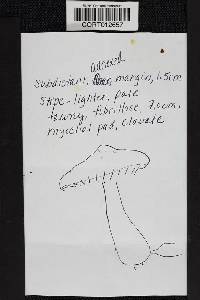 CORT012657
adnexed
subdistant, margin, 1.5cm
Stipe - lighter, pale
tawny, fibrillose 7.0cm,
mycelial pad, clavate